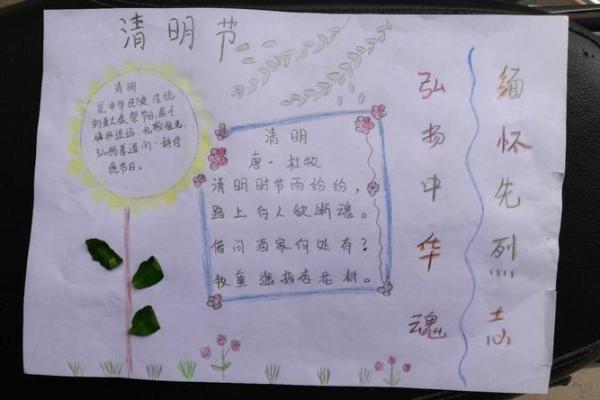 清明节
清明
是中华民族传统
的重大春祭节日,属于
慎终追远、礼敬祖先、
弘扬孝道的一种传
统节日。
清明
唐·杜牧
清明时节雨纷纷,
路上行人欲断魂。
借问酒家何处有?
牧童遥指杏花村。
弘扬中华魂
缅怀先烈志